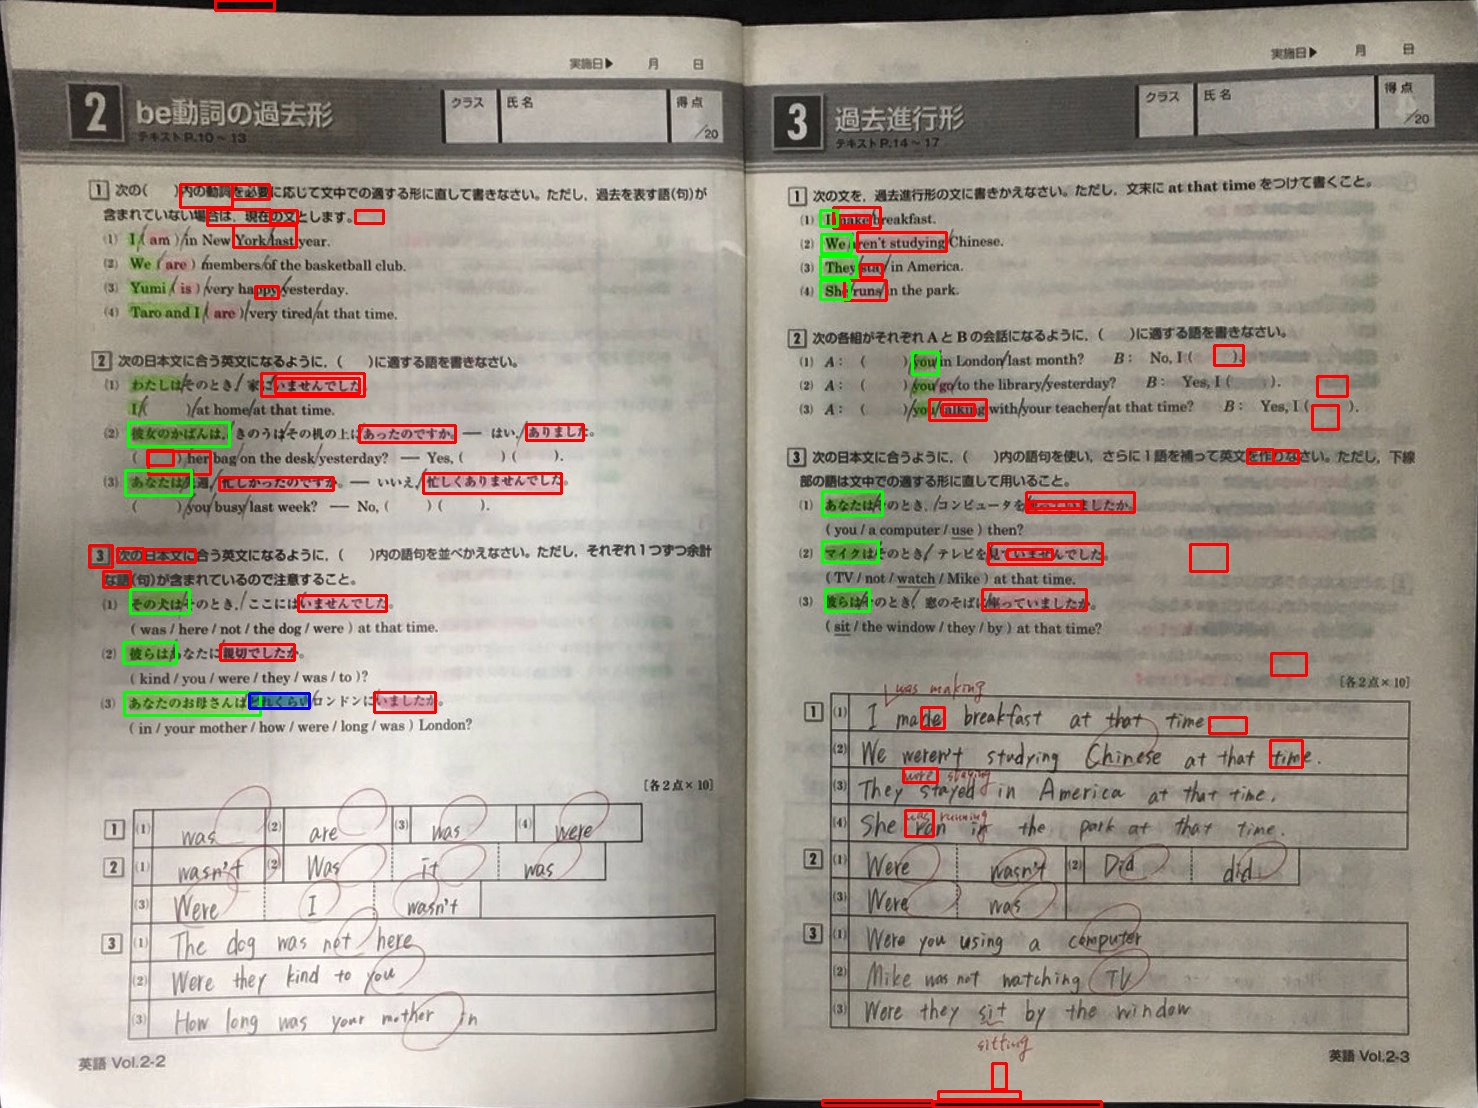 実施日▶ 月 日
2 be動詞の過去形
テキストP.10～13
クラス 氏名 得点 /20
1 次の( )内の動詞を必要に応じて文中での適する形に直して書きなさい。ただし，過去を表す語(句)が
含まれていない場合は，現在の文とします。
(1) I ( am ) in New York last year.
(2) We ( are ) members of the basketball club.
(3) Yumi ( is ) very happy yesterday.
(4) Taro and I ( are ) very tired at that time.
2 次の日本文に合う英文になるように，( )に適する語を書きなさい。
(1) わたしはそのとき，家にいませんでした。
I ( ) at home at that time.
(2) 彼女のかばんは，きのうはその机の上にあったのですか。— はい，ありました。
( ) her bag on the desk yesterday? — Yes, ( ) ( ).
(3) あなたは先週，忙しかったのですか。— いいえ，忙しくありませんでした。
( ) you busy last week? — No, ( ) ( ).
3 次の日本文に合う英文になるように，( )内の語句を並べかえなさい。ただし，それぞれ1つずつ余計
な語(句)が含まれているので注意すること。
(1) その犬はそのとき，ここにはいませんでした。
( was / here / not / the dog / were ) at that time.
(2) 彼らはあなたに親切でしたか。
( kind / you / were / they / was / to )?
(3) あなたのお母さんはどれくらいロンドンにいましたか。
( in / your mother / how / were / long / was ) London?
[各2点×10]
1 (1) was (2) are (3) was (4) were
2 (1) wasn't (2) Was it was
(3) Were I wasn't
3 (1) The dog was not here
(2) Were they kind to you
(3) How long was your mother in
英語 Vol.2-2
実施日▶ 月 日
3 過去進行形
テキストP.14～17
クラス 氏名 得点 /20
1 次の文を，過去進行形の文に書きかえなさい。ただし，文末に at that time をつけて書くこと。
(1) I make breakfast.
(2) We aren't studying Chinese.
(3) They stay in America.
(4) She runs in the park.
2 次の各組がそれぞれ A と B の会話になるように，( )に適する語を書きなさい。
(1) A: ( ) you in London last month? B: No, I ( ).
(2) A: ( ) you go to the library yesterday? B: Yes, I ( ).
(3) A: ( ) you talking with your teacher at that time? B: Yes, I ( ).
3 次の日本文に合うように，( )内の語句を使い，さらに1語を補って英文を作りなさい。ただし，下線
部の語は文中での適する形に直して用いること。
(1) あなたはそのとき，コンピュータを使っていましたか。
( you / a computer / use ) then?
(2) マイクはそのとき，テレビを見ていませんでした。
( TV / not / watch / Mike ) at that time.
(3) 彼らはそのとき，窓のそばに座っていましたか。
( sit / the window / they / by ) at that time?
[各2点×10]
was making
1 (1) I made breakfast at that time
(2) We weren't studying Chinese at that time.
were staying
(3) They stayed in America at that time.
was running
(4) She ran in the park at that time.
2 (1) Were wasn't (2) Did did
(3) Were was
3 (1) Were you using a computer
(2) Mike was not watching TV
(3) Were they sit by the window
sitting
英語 Vol.2-3